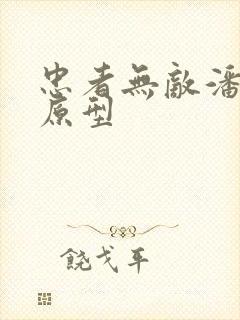 忠者無敵潘
原型
饒戈平